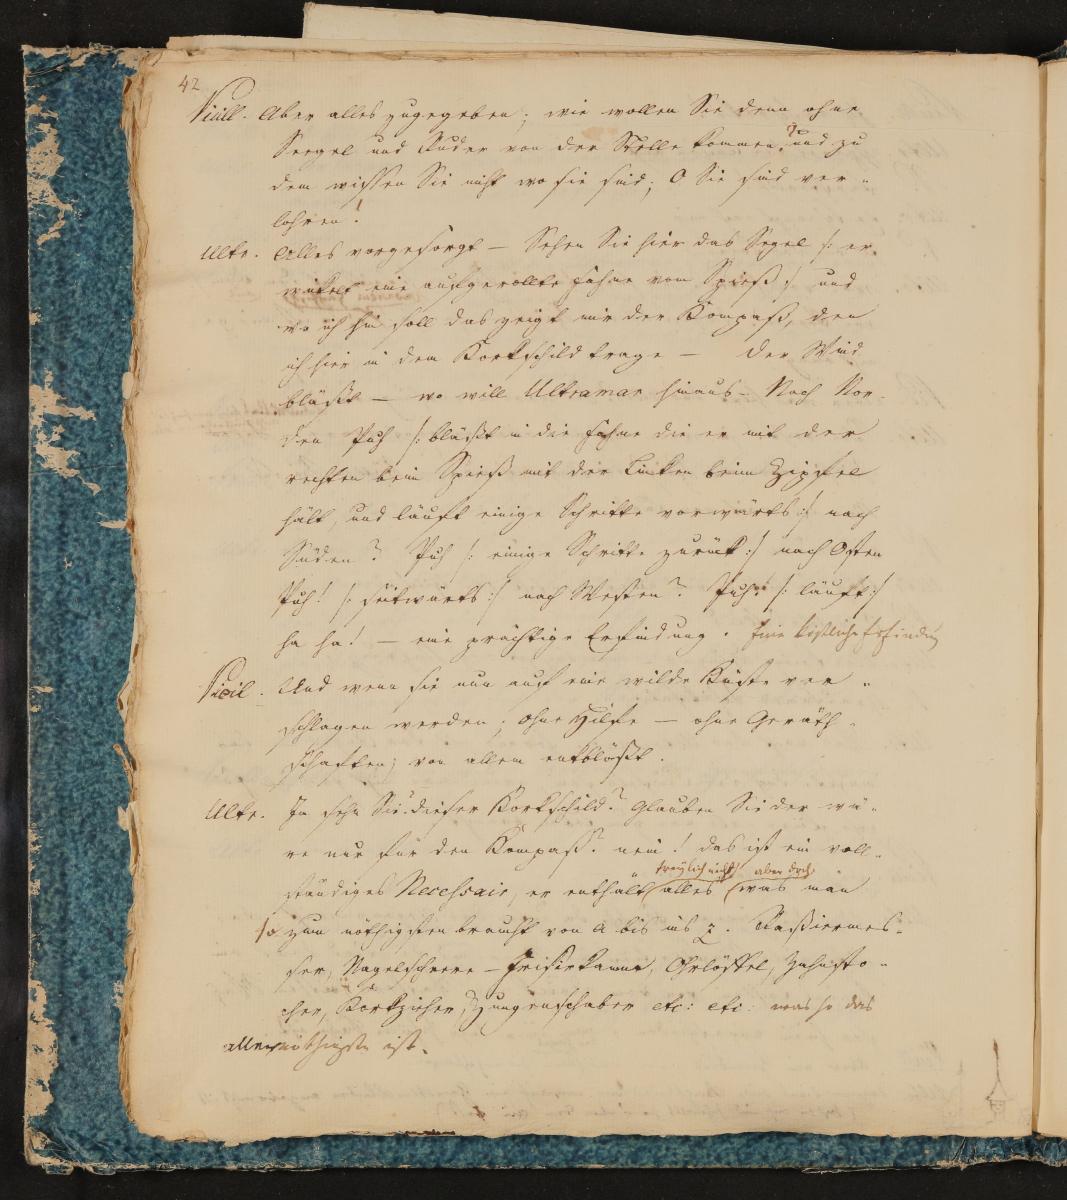 42
Vicill. Aber alles zugegeben; wie wollen Sie denn ohne
Seegel und Ruder von der Stelle kommen,? und zu
dem wissen Sie nicht wo sie sind; O Sie sind ver-
lohren!
Ultr. Alles vorgesorgt — Sehen Sie hier das Segel /: er
wikelt eine aufgerollte Fahne vom Spieß :/ und
wo ich hin soll das zeigt mir der Kompaß, den
ich hier in dem Korkschild trage — Der Wind
bläßt — wo will Ultramar hinaus — Nach Nor-
den Puh /: bläßt in die Fahne die er mit der
rechten beim Spieß mit der Linken beim Zipfel
hält, und läuft einige Schritte vorwärts :/ nach
Süden? Puh /: einige Schritte zurük :/ nach Osten
Puh! /: seitwärts :/ nach Westen? Puh! /: läuft :/
ha ha! — eine prächtige Erfindung. Eine köstliche Erfindung
Vicil. Und wenn sie nun auf eine wilde Küste ver-
schlagen werden; ohne Hilfe — ohne Geräth-
schaften; von allem entblößt.
Ultr. Ja sehn Sie dieser Korkschild? Glauben Sie der wä-
re nur für den Kompaß? nein! das ist ein voll-
freylich nicht aber doch
ständiges Necessair, er enthält alles was man
so zum nöthigsten braucht von A bis ins Z. Rassiermes-
ser, Nagelscheere — Frisirkamm, Ohrlöffel, Zahnsto-
cher, Korkzieher, Zungenschaber etc: etc: was so das
allernöthigste ist.